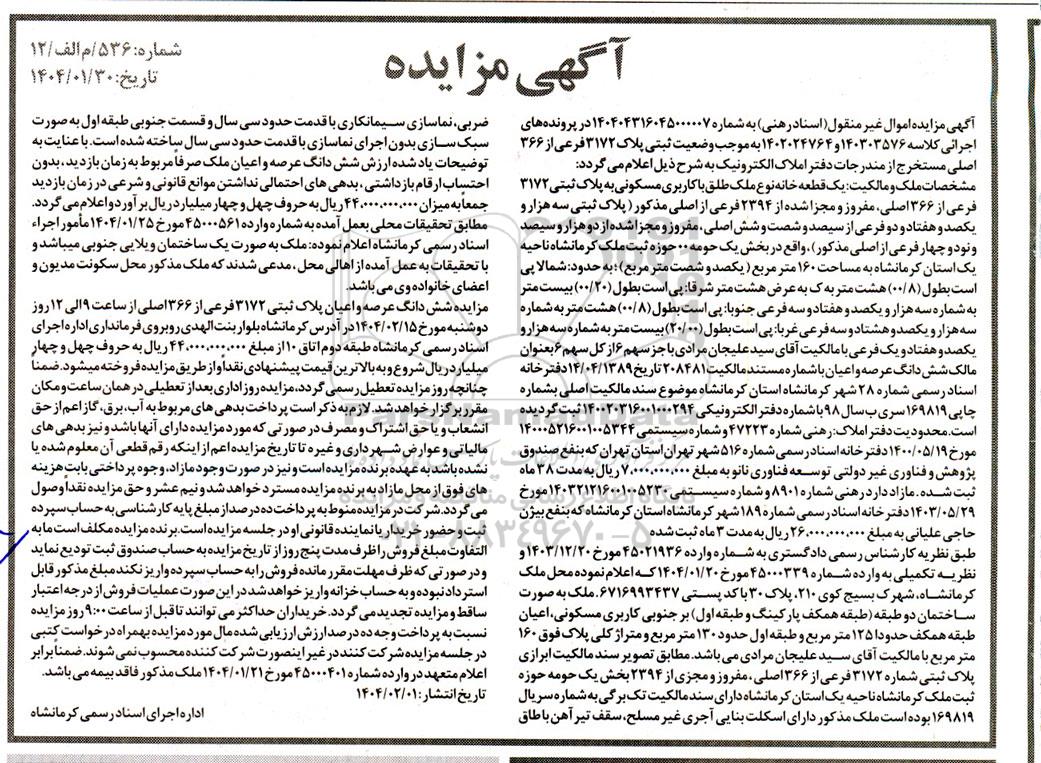 آگهی مزایده
شماره: ۵۳۶/م الف/۱۲
تاریخ: ۱۴۰۴/۰۱/۳۰
آگهی مزایده اموال غیر منقول (اسناد رهنی) به شماره ۱۴۰۴۰۴۳۱۶۰۴۵۰۰۰۰۰۷ در پرونده‌های
اجرائی کلاسه ۱۴۰۳۰۳۵۷۶ و ۱۴۰۲۰۲۴۷۶۴ به موجب وضعیت ثبتی پلاک ۳۱۷۲ فرعی از ۳۶۶
اصلی مستخرج از مندرجات دفتر املاک الکترونیک به شرح ذیل اعلام می گردد:
مشخصات ملک و مالکیت: یک قطعه خانه نوع ملک طلق با کاربری مسکونی به پلاک ثبتی ۳۱۷۲
فرعی از ۳۶۶ اصلی، مفروز و مجزا شده از ۲۳۹۴ فرعی از اصلی مذکور (پلاک ثبتی سه هزار و
یکصد و هفتاد و دو فرعی از سیصد و شصت و شش اصلی، مفروز و مجزا شده از دو هزار و سیصد
و نود و چهار فرعی از اصلی مذکور)، واقع در بخش یک حومه ۰۰ حوزه ثبت ملک کرمانشاه ناحیه
یک استان کرمانشاه به مساحت ۱۶۰ متر مربع (یکصد و شصت متر مربع)؛ به حدود: شمالا پی
است بطول (۰۰/۸) هشت متر به ک به عرض هشت متر شرقا: پی است بطول (۰۰/۲۰) بیست متر
به شماره سه هزار و یکصد و هفتاد و سه فرعی جنوبا: پی است بطول (۰۰/۸) هشت متر به شماره
سه هزار و یکصد و هشتاد و سه فرعی غربا: پی است بطول (۲۰/۰۰) بیست متر به شماره سه هزار و
یکصد و هفتاد و یک فرعی با مالکیت آقای سید علیجان مرادی با جز سهم ۶ از کل سهم ۶ بعنوان
مالک شش دانگ عرصه و اعیان با شماره مستند مالکیت ۲۰۸۴۸۱ تاریخ ۱۴/۰۴/۱۳۸۹ دفترخانه
اسناد رسمی شماره ۲۸ شهر کرمانشاه استان کرمانشاه موضوع سند مالکیت اصلی بشماره
چاپی ۱۶۹۸۱۹ سری ب سال ۹۸ با شماره دفتر الکترونیکی ۱۴۰۰۲۰۳۱۶۰۰۱۰۰۰۲۹۴ ثبت گردیده
است. محدودیت دفتر املاک: رهنی شماره ۴۷۲۲۳ و شماره سیستمی ۱۴۰۰۰۵۲۱۶۰۰۱۰۰۵۳۴۴
مورخ ۱۴۰۰/۰۵/۱۹ دفترخانه اسناد رسمی شماره ۵۱۶ شهر تهران استان تهران که بنفع صندوق
پژوهش و فناوری غیر دولتی توسعه فناوری نانو به مبلغ ۷,۰۰۰,۰۰۰,۰۰۰ ریال به مدت ۳۸ ماه
ثبت شده. مازاد دارد رهنی شماره ۸۹۰۱ و شماره سیستمی ۱۴۰۳۲۱۲۱۶۰۰۱۰۵۲۳۰ مورخ
۱۴۰۳/۰۵/۲۹ دفترخانه اسناد رسمی شماره ۱۸۹ شهر کرمانشاه استان کرمانشاه که بنفع بیژن
حاجی علیانی به مبلغ ۲۶,۰۰۰,۰۰۰,۰۰۰ ریال به مدت ۳ ماه ثبت شده
طبق نظریه کارشناس رسمی دادگستری به شماره وارده ۴۵۰۲۱۹۳۶ مورخ ۱۴۰۳/۱۲/۲۰ و
نظریه تکمیلی به وارده شماره ۴۵۰۰۰۳۳۹ مورخ ۱۴۰۴/۰۱/۲۰ که اعلام نموده محل ملک
کرمانشاه، شهرک بسیج کوی ۲۱۰، پلاک ۳۰ با کد پستی ۶۷۱۶۹۹۳۴۳۷. ملک به صورت
ساختمان دو طبقه (طبقه همکف پارکینگ و طبقه اول) بر جنوبی کاربری مسکونی، اعیان
طبقه همکف حدودا ۱۲۵ متر مربع و طبقه اول حدود ۱۳۰ متر مربع و متراژ کلی پلاک فوق ۱۶۰
متر مربع با مالکیت آقای سید علیجان مرادی می باشد. مطابق تصویر سند مالکیت ابرازی
پلاک ثبتی شماره ۳۱۷۲ فرعی از ۳۶۶ اصلی، مفروز و مجزی از ۲۳۹۴ بخش یک حومه حوزه
ثبت ملک کرمانشاه ناحیه یک استان کرمانشاه دارای سند مالکیت تک برگی به شماره سریال
۱۶۹۸۱۹ بوده است ملک مذکور دارای اسکلت بنایی آجری غیر مسلح، سقف تیر آهن با طاق
ضربی، نماسازی سیمانکاری با قدمت حدود سی سال و قسمت جنوبی طبقه اول به صورت
سبک سازی بدون اجرای نماسازی با قدمت حدود سی سال ساخته شده است. با عنایت به
توضیحات یاد شده ارزش شش دانگ عرصه و اعیان ملک صرفاً مربوط به زمان بازدید، بدون
احتساب ارقام بازداشتی، بدهی های احتمالی نداشتن موانع قانونی و شرعی در زمان بازدید
جمعاً به میزان ۴۴,۰۰۰,۰۰۰,۰۰۰ ریال به حروف چهل و چهار میلیارد ریال برآورد و اعلام می گردد.
مطابق تحقیقات محلی بعمل آمده به شماره وارده ۴۵۰۰۰۵۶۱ مورخ ۱۴۰۴/۰۱/۲۵ مأمور اجراء
اسناد رسمی کرمانشاه اعلام نموده: ملک به صورت یک ساختمان ویلایی جنوبی میباشد و
با تحقیقات به عمل آمده از اهالی محل، مدعی شدند که ملک مذکور محل سکونت مدیون و
اعضای خانواده وی می باشد.
مزایده شش دانگ عرصه و اعیان پلاک ثبتی ۳۱۷۲ فرعی از ۳۶۶ اصلی از ساعت ۹ الی ۱۲ روز
دوشنبه مورخ ۱۴۰۴/۰۲/۱۵ در آدرس کرمانشاه بلوار بنت الهدی روبروی فرمانداری اداره اجرای
اسناد رسمی کرمانشاه طبقه دوم اتاق ۱۰ از مبلغ ۴۴,۰۰۰,۰۰۰,۰۰۰ ریال به حروف چهل و چهار
میلیارد ریال شروع و به بالاترین قیمت پیشنهادی نقداً و از طریق مزایده فروخته میشود. ضمناً
چنانچه روز مزایده تعطیل رسمی گردد، مزایده روز اداری بعد از تعطیلی در همان ساعت و مکان
مقرر برگزار خواهد شد. لازم به ذکر است پرداخت بدهی های مربوط به آب، برق، گاز اعم از حق
انشعاب و یا حق اشتراک و مصرف در صورتی که مورد مزایده دارای آنها باشد و نیز بدهی های
مالیاتی و عوارض شهرداری و غیره تا تاریخ مزایده اعم از اینکه رقم قطعی آن معلوم شده یا
نشده باشد به عهده برنده مزایده است و نیز در صورت وجود مازاد، وجوه پرداختی بابت هزینه
های فوق از محل مازاد به برنده مزایده مسترد خواهد شد و نیم عشر و حق مزایده نقداً وصول
می گردد. شرکت در مزایده منوط به پرداخت ده درصد از مبلغ پایه کارشناسی به حساب سپرده
ثبت و حضور خریدار یا نماینده قانونی او در جلسه مزایده است. برنده مزایده مکلف است مابه
التفاوت مبلغ فروش را ظرف مدت پنج روز از تاریخ مزایده به حساب صندوق ثبت تودیع نماید
و در صورتی که ظرف مهلت مقرر مانده فروش را به حساب سپرده واریز نکند مبلغ مذکور قابل
استرداد نبوده و به حساب خزانه واریز خواهد شد در این صورت عملیات فروش از درجه اعتبار
ساقط و مزایده تجدید می گردد. خریداران حداکثر می توانند تا قبل از ساعت ۹:۰۰ روز مزایده
نسبت به پرداخت وجه ده درصد ارزش ارزیابی شده مال مورد مزایده بهمراه درخواست کتبی
در جلسه مزایده شرکت کنند در غیر اینصورت شرکت کننده محسوب نمی شوند. ضمناً برابر
اعلام متعهد در وارده شماره ۴۵۰۰۰۴۰۱ مورخ ۱۴۰۴/۰۱/۲۱ ملک مذکور فاقد بیمه می باشد.
تاریخ انتشار: ۱۴۰۴/۰۲/۰۱
اداره اجرای اسناد رسمی کرمانشاه